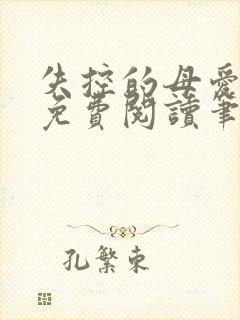 失控的母愛
免費閱讀筆
孔繁東